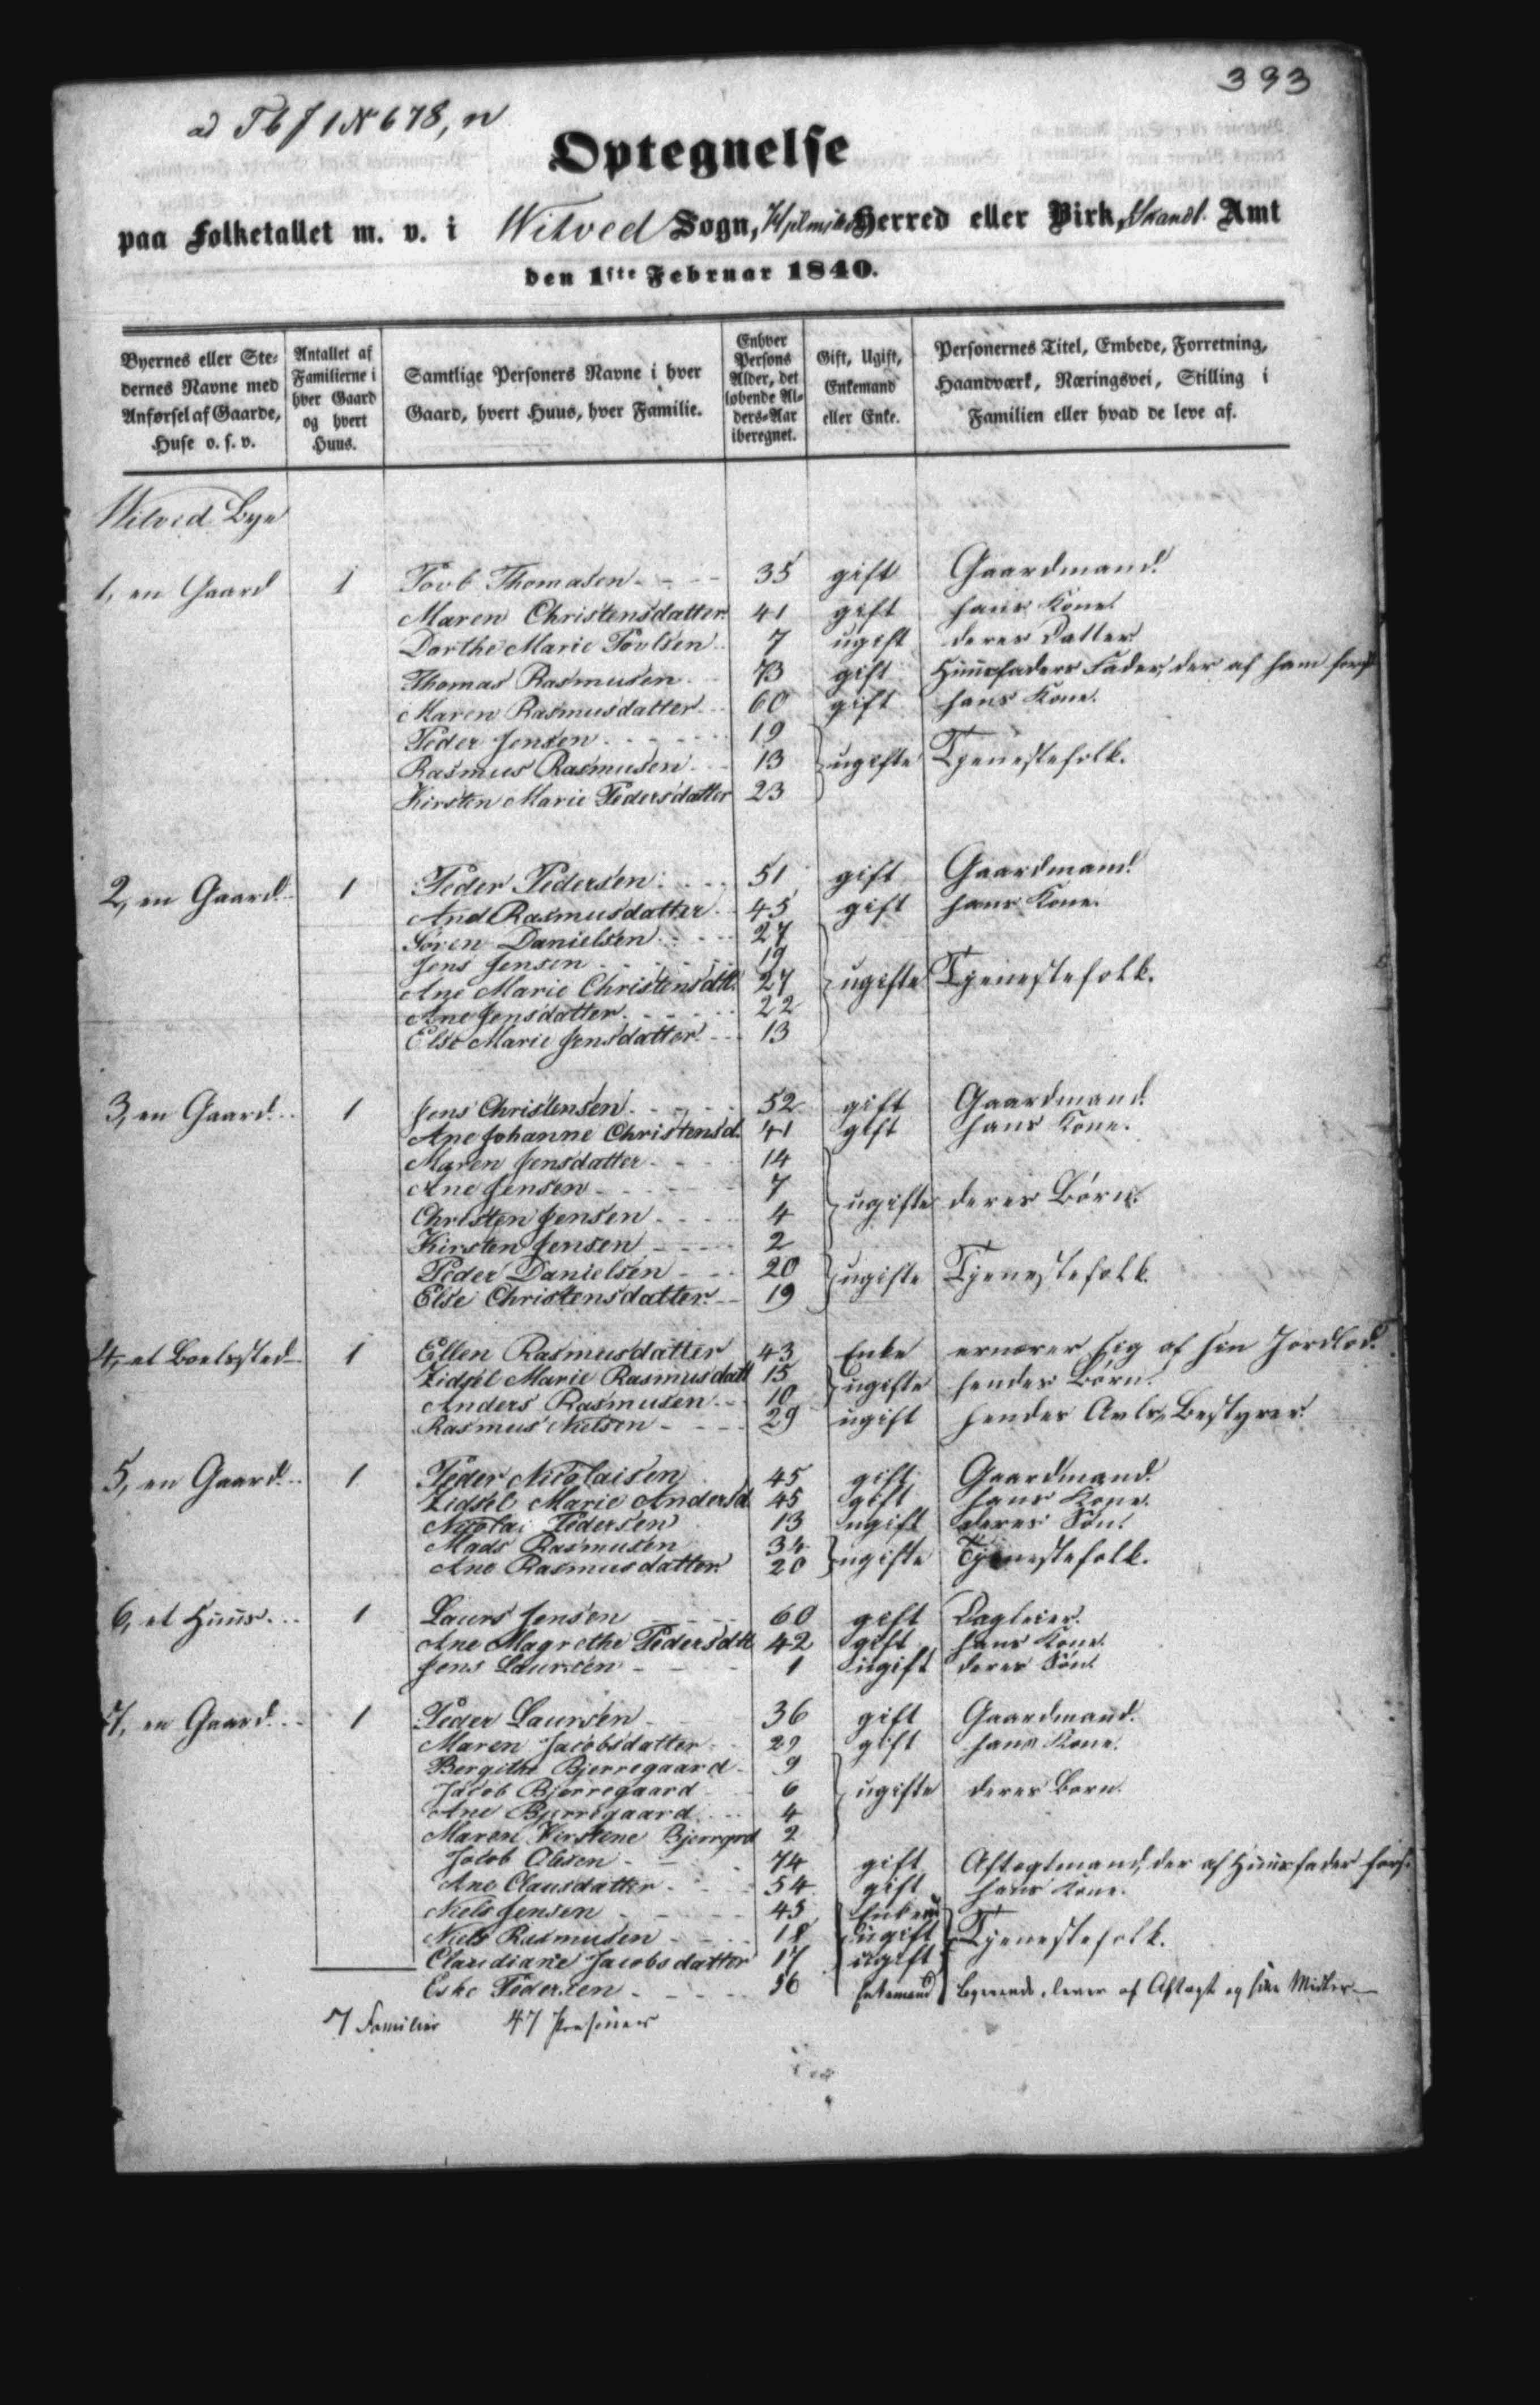 393
ad Tb J 1 N 678, n
Optegnelse
paa Folketallet m. v. i Witved Sogn, Hjelmsl. Herred eller Birk, Skandb. Amt
den 1ste Februar 1840.
Byernes eller Ste-dernes Navne med Anførsel af Gaarde, Huse o. s. v. | Antallet af Familierne i hver Gaard og hvert Huus. | Samtlige Personers Navne i hver Gaard, hvert Huus, hver Familie. | Enhver Persons Alder, det løbende Al-ders-Aar iberegnet. | Gift, Ugift, Enkemand eller Enke. | Personernes Titel, Embede, Forretning, Haandværk, Næringsvei, Stilling i Familien eller hvad de leve af.
Witved Bye
1, en Gaard 1 Povl Thomasen 35 gift Gaardmand
Maren Christensdatter 41 gift hans Kone
Dorthe Marie Povlsen 7 ugift deres Datter
Thomas Rasmusen 73 gift Huusfaders Fader, der af ham fors.
Maren Rasmusdatter 60 gift hans Kone.
Peder Jensen 19
Rasmus Rasmusen 13 } ugifte Tjenestefolk.
Kirsten Marie Pedersdatter 23
2, en Gaard 1 Peder Pedersen 51 gift Gaardmand
Ane Rasmusdatter 45 gift hans Kone.
Søren Danielsen 27
Jens Jensen 19
Ane Marie Christensdtt. 27 } ugifte Tjenestefolk.
Ane Jensdatter 22
Else Marie Jensdatter 13
3, en Gaard 1 Jens Christensen 52 gift Gaardmand
Ane Johanne Christensd. 41 gift hans Kone.
Maren Jensdatter 14
Ane Jensen 7
Christen Jensen 4 } ugifte deres Børn
Kirsten Jensen 2
Peder Danielsen 20 } ugifte Tjenestefolk
Else Christensdatter 19
4, et Boelssted 1 Ellen Rasmusdatter 43 Enke ernærer sig af sin Jordlod.
Zidsel Marie Rasmusdatt 15 } ugifte hendes Børn
Anders Rasmusen 10
Rasmus Nielsen 29 ugift hendes Avls Bestyrer
5, en Gaard 1 Peder Nicolaisen 45 gift Gaardmand
Zidsel Marie Andersd 45 gift hans Kone.
Nicolai Pedersen 13 ugift deres Søn
Mads Rasmusen 34 } ugifte Tjenestefolk.
Ane Rasmusdatter 20
6, et Huus 1 Laurs Jensen 60 gift Dagleier.
Ane Magrethe Pedersdtt 42 gift hans Kone
Jens Laursen 1 ugift deres Søn
7, en Gaard 1 Peder Laursen 36 gift Gaardmand.
Maren Jacobsdatter 29 gift hans Kone.
Bergithe Bjerregaard 9
Jacob Bjerregaard 6 } ugifte deres Børn
Ane Bjerregaard 4
Maren Kirstene Bjerrgrd 2
Jacob Olesen 74 gift Aftægtmand, der af Huusfader fors.
Ane Clausdatter 54 gift hans Kone.
Niels Jensen 45 Enkem
Niels Rasmusen 18 ugift } Tjenestefolk.
Claudiane Jacobsdatter 17 ugift
Eske Pedersen 56 Enkemand lever af Aftægt og sine Midler
7 Familier 47 Personer